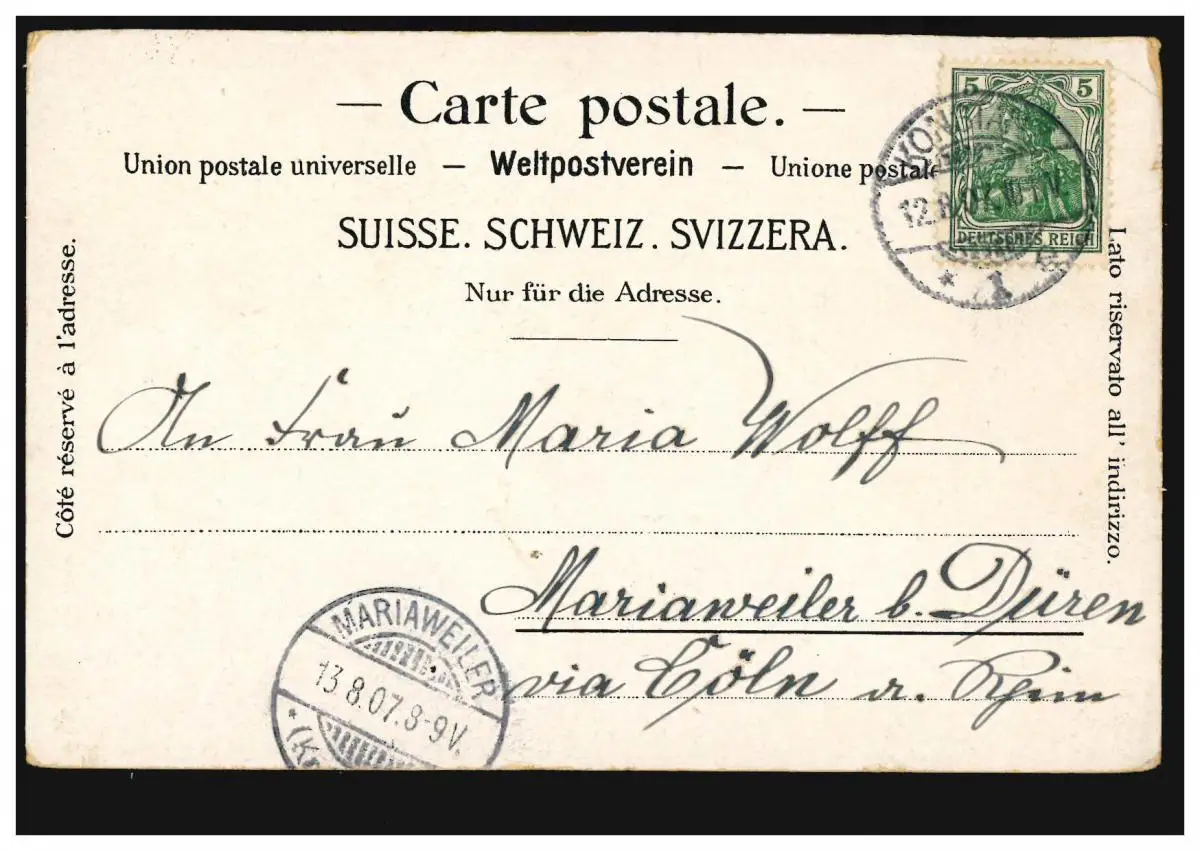 — Carte postale. —
Union postale universelle — Weltpostverein — Unione postale
SUISSE. SCHWEIZ. SVIZZERA.
Nur für die Adresse.
Côté réservé à l'adresse.
Lato riservato all' indirizzo.
5 5
DEUTSCHES REICH
12.8.07.
* 1
An Frau Maria Wolff
Mariaweiler b. Düren
via Cöln a. Rhein
MARIAWEILER
13.8.07.8-9V.